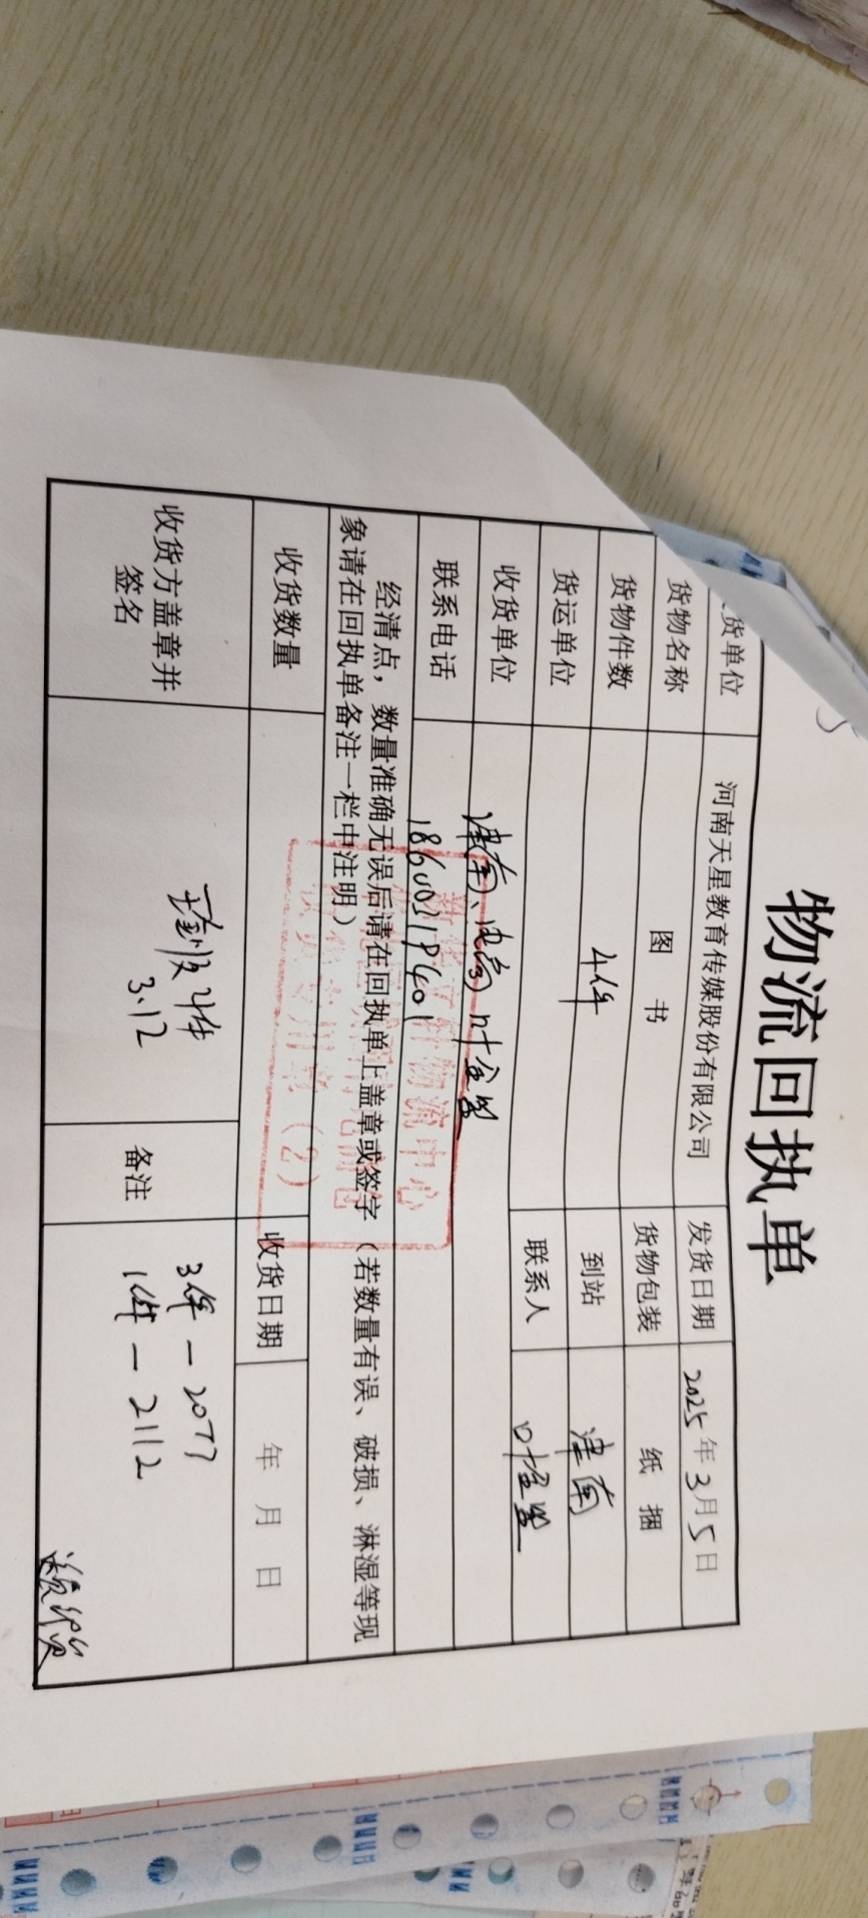 物流回执单
货单位 河南天星教育传媒股份有限公司 发货日期 2025年3月5日
货物名称 图 书 货物包装 纸 捆
货物件数 4件 到站 津南
货运单位 联系人
收货单位 津南、
联系电话
经清点，数量准确无误后请在回执单上盖章或签字（若数量有误、破损、淋湿等现
象请在回执单备注一栏中注明）
收货数量 收货日期 年 月 日
收货方盖章并
签名
4件
3.12
备注
3件－2077
1件－2112
物流中心
（2）